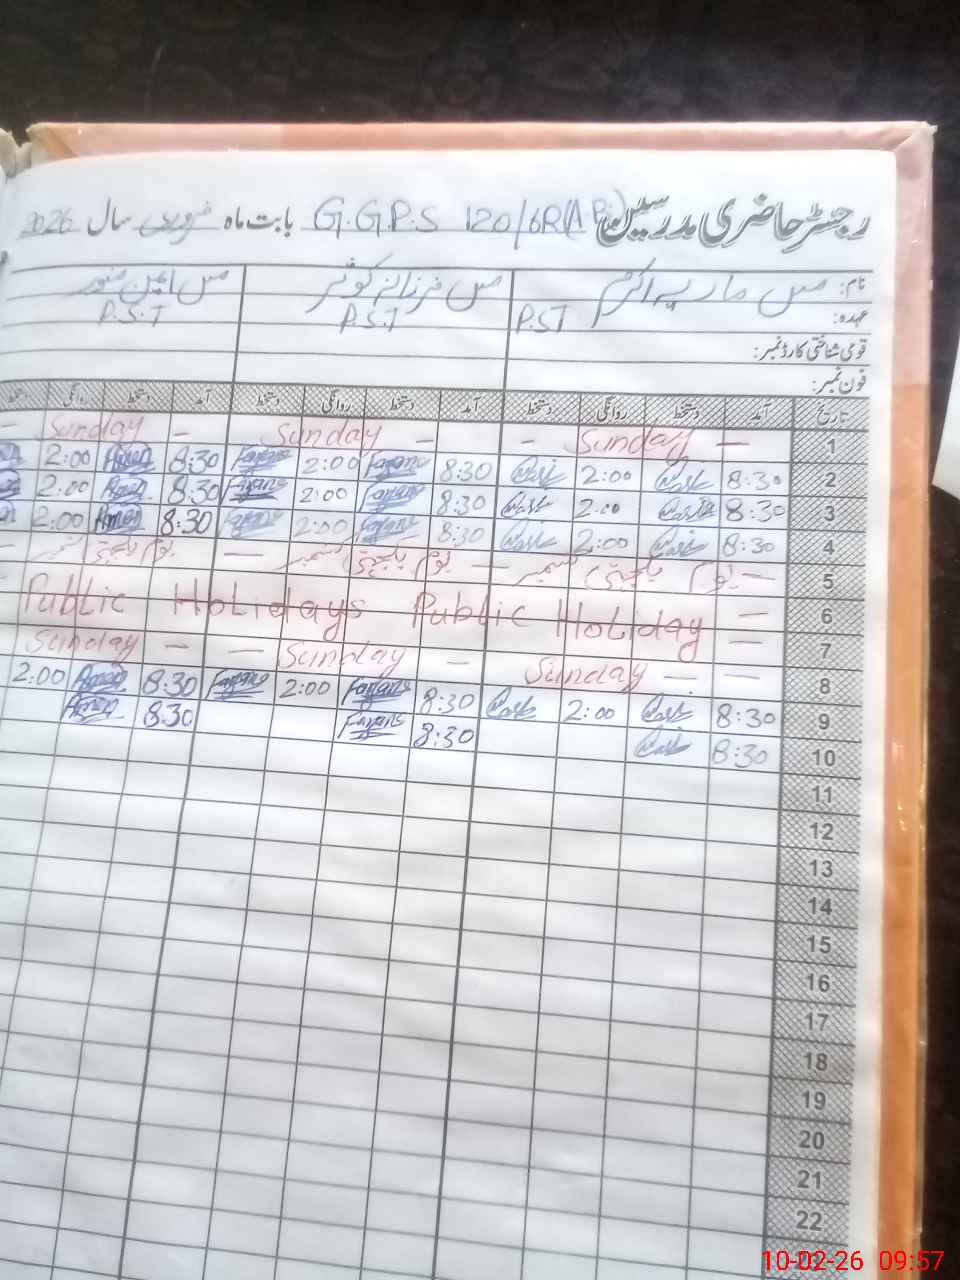 رجسٹر حاضری مدرسین G.G.P.S 120/6R(A.P.) بابت ماہ فروری سال 2026
نام: مس ماریہ اکرم مس فرزانہ کوثر مس ایمن منور
عہدہ: P.ST P.S.T P.S.T
قومی شناختی کارڈ نمبر:
فون نمبر:
تاریخ آمد دستخط روانگی دستخط آمد دستخط روانگی دستخط آمد دستخط روانگی دستخط
1 — Sunday — — Sunday — Sunday —
2 8:30 2:00 8:30 Farzana 2:00 Farzana 8:30 Aimen 2:00
3 8:30 2:00 8:30 Farzana 2:00 Farzana 8:30 Aimen 2:00
4 8:30 2:00 8:30 Farzana 2:00 Farzana 8:30 Aimen 2:00
5 — یوم یکجہتی کشمیر — یوم یکجہتی کشمیر — یوم یکجہتی کشمیر —
6 — Public Holidays Public Holiday
7 —
8 — — Sunday — Sunday — — Sunday
9 8:30 2:00 8:30 Farzana 2:00 Farzana 8:30 Aimen 2:00
10 8:30 8:30 Farzana 8:30 Aimen
11
12
13
14
15
16
17
18
19
20
21
22
23
10-02-26 09:57